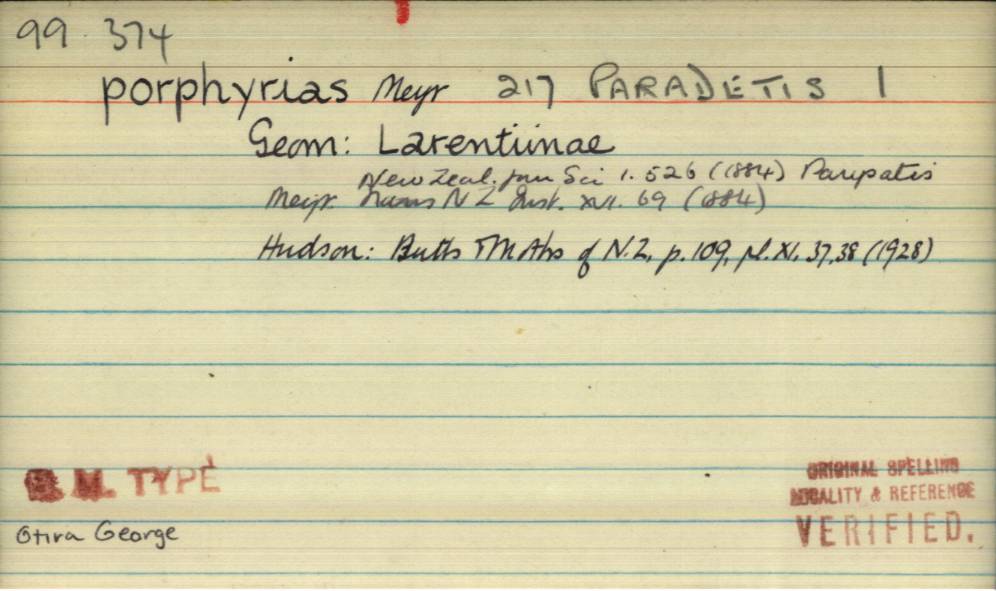 99.374
porphyrias Meyr 217 PARADETIS 1
Geom: Larentiinae
New Zeal. Jnu Sci 1. 526 (1884) Parysatis
Meyr. Trans N Z Inst. XVII. 69 (1884)
Hudson: Butts & Moths of N.Z, p. 109, pl. XI. 37, 38 (1928)
B. M. TYPE
Otira George
ORIGINAL SPELLING
LOCALITY & REFERENCE
VERIFIED.